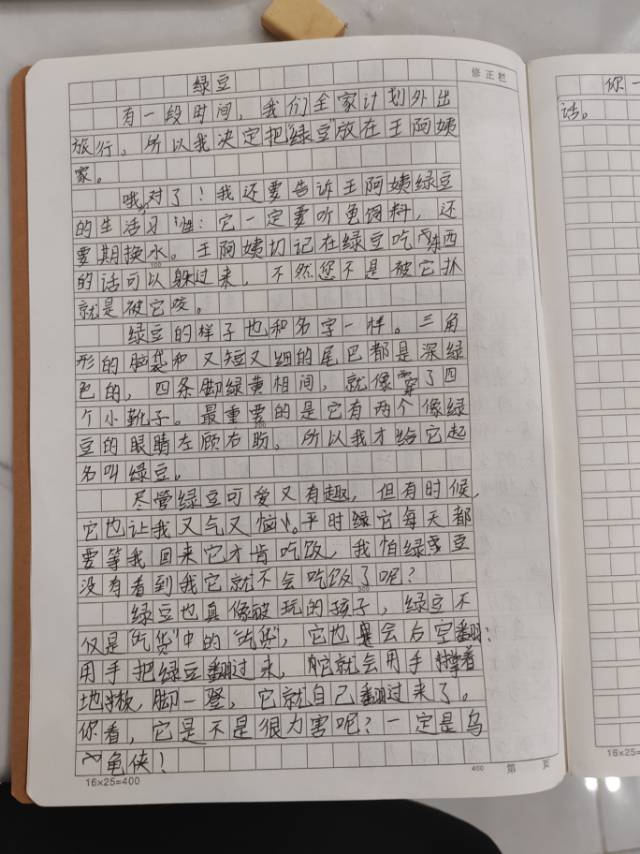 绿豆
修正栏
有一段时间，我们全家计划外出
旅行。所以我决定把“绿豆”放在王阿姨
家。
哦，对了！我还要告诉王阿姨绿豆
的生活习性：它一定要吃龟饲料，还
要期换水。王阿姨切记在绿豆吃东西
的话可以躲过来，不然您不是被它扒
就是被它咬。
绿豆的样子也和名字一样。三角
形的脑袋和又短又细的尾巴都是深绿
色的，四条脚绿黄相间，就像穿了四
个小靴子。最重要的是它有两个像绿
豆的眼睛左顾右盼。所以我才给它起
名叫绿豆。
尽管绿豆可爱又有趣，但有时候，
它也让我又气又恼。平时绿它每天都
要等我回来它才肯吃饭，我怕绿豆
没有看到我它就不会吃饭了呢？
绿豆也真像被玩的孩子，绿豆不
仅是“吃货”中的“吃货”，它也是会后空翻：
用手把绿豆翻过来，它就会用手撑着
地板，脚一蹬，它就自己翻过来了。
你看，它是不是很力害呢？一定是乌
龟侠！
16×25=400
400
第 页
你一
话。
16×2